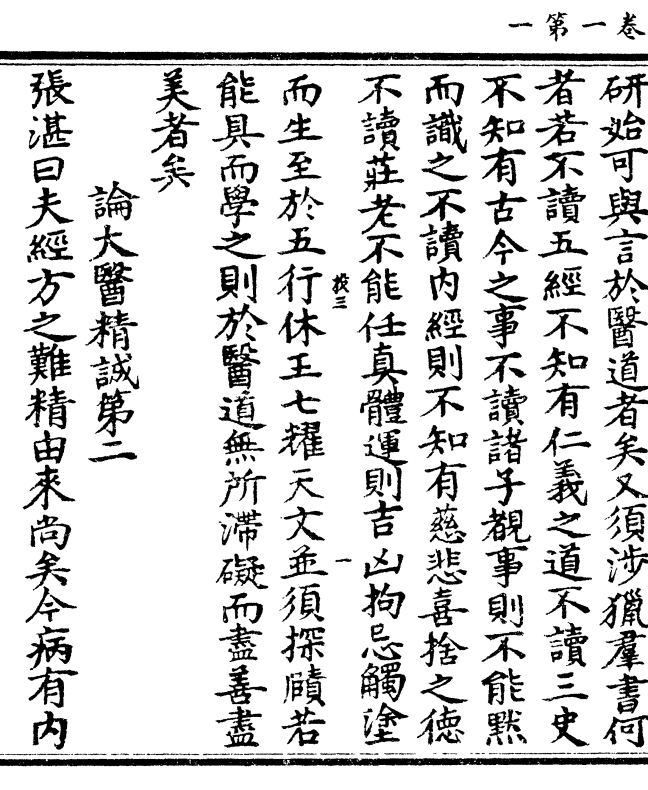 卷第一
一
研始可與言於醫道者矣又須涉獵羣書何
者若不讀五經不知有仁義之道不讀三史
不知有古今之事不讀諸子覩事則不能默
而識之不讀内經則不知有慈悲喜捨之德
不讀莊老不能任真體運則吉凶拘忌觸塗
而生至於五行休王七耀天文並須探賾若
能具而學之則於醫道無所滯礙而盡善盡
美者矣
論大醫精誠第二
張湛曰夫經方之難精由來尚矣今病有内